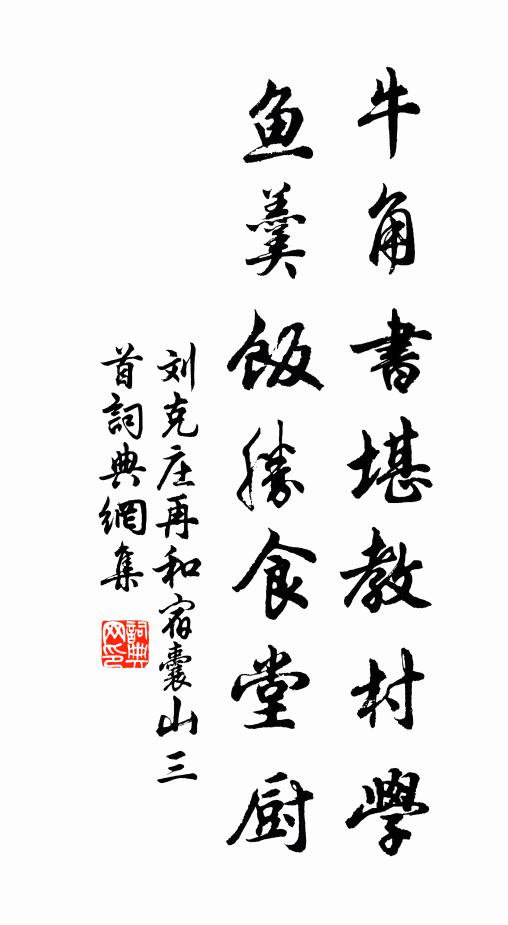 牛角書堪教村學
鱼羹飯勝食堂厨
刘克庄再和宿囊山三
首詞典網集
詞典网印